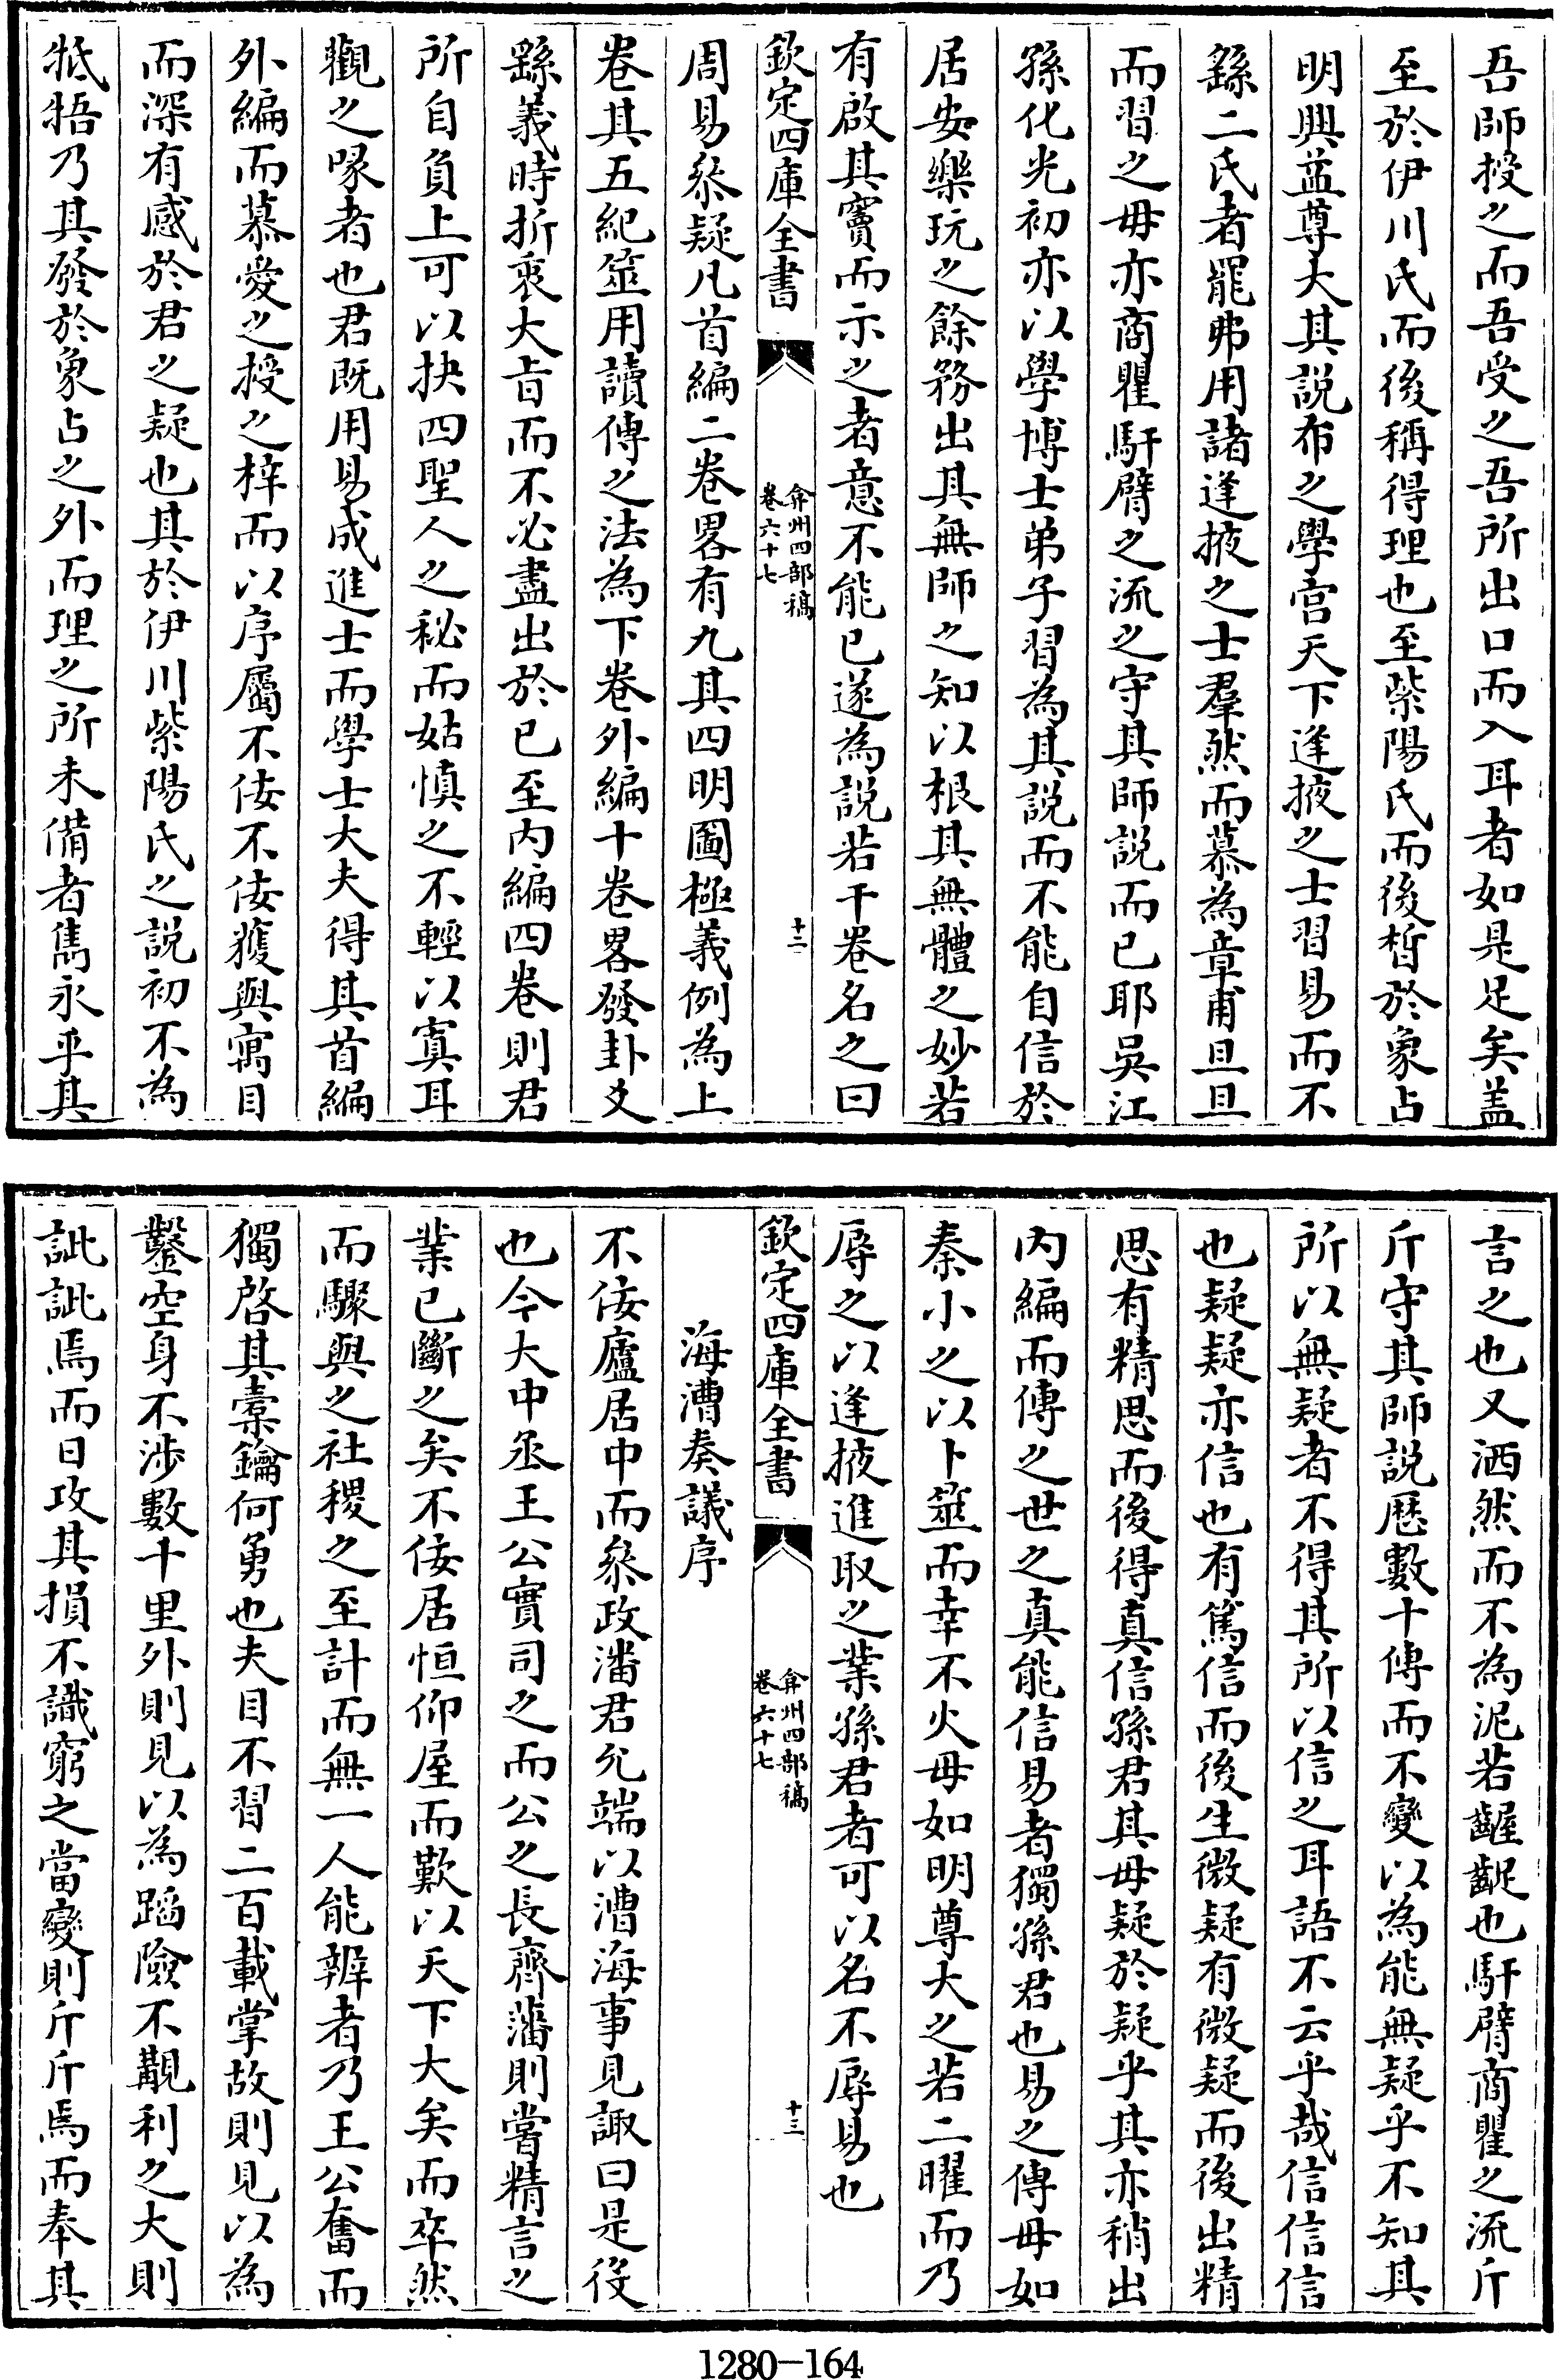 吾師授之而吾受之吾所出口而入耳者如是足矣盖
至於伊川氏而後稱得理也至紫陽氏而後晳於象占
明興益尊大其說布之學宫天下逢掖之士習易而不
繇二氏者罷弗用諸逢掖之士羣然而慕為章甫旦旦
而習之毋亦商瞿馯臂之流之守其師説而已耶吳江
孫化光初亦以學博士弟子習為其説而不能自信於
居安樂玩之餘務出其無師之知以根其無體之妙若
有啟其竇而示之者意不能已遂為説若干卷名之曰
欽定四庫全書
弇州四部稿
卷六十七
十二
周易叅疑凡首編二卷畧有九其四明圖極義例為上
卷其五紀筮用讀傳之法為下卷外編十卷畧發卦爻
繇義時折衷大㫖而不必盡出於已至内編四卷則君
所自負上可以抉四聖人之秘而姑慎之不輕以寘耳
觀之喙者也君既用易成進士而學士大夫得其首編
外編而慕愛之授之梓而以序屬不佞不佞獲與寓目
而深有感於君之疑也其於伊川紫陽氏之説初不為
牴牾乃其發於象占之外而理之所未備者雋永乎其
言之也又洒然而不為泥若齷齪也馯臂商瞿之流斤
斤守其師説歴數十傳而不變以為能無疑乎不知其
所以無疑者不得其所以信之耳語不云乎哉信信信
也疑疑亦信也有篤信而後生微疑有微疑而後出精
思有精思而後得真信孫君其毋疑於疑乎其亦稍出
内編而傳之世之真能信易者獨孫君也易之傳毋如
秦小之以卜筮而幸不火毋如明尊大之若二曜而乃
辱之以逢掖進取之業孫君者可以名不辱易也
欽定四庫全書
弇州四部稿
卷六十七
十三
海漕奏議序
不佞廬居中而叅政潘君允端以漕海事見諏曰是役
也今大中丞王公實司之而公之長齊藩則嘗精言之
業已斷之矣不佞居恒仰屋而歎以天下大矣而卒然
而驟與之社稷之至計而無一人能辦者乃王公奮而
獨啓其橐鑰何勇也夫目不習二百載掌故則見以為
鑿空身不涉數十里外則見以為蹈險不覩利之大則
訿訿焉而日攻其損不識窮之當變則斤斤焉而奉其
1280—164